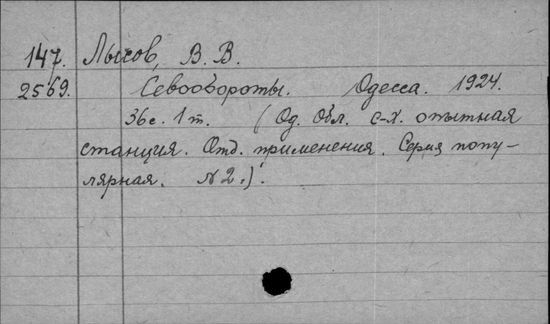 147. Лычов, В. В.
2569. Севообороты. Одесса. 1924.
36 с. 1 т. (Од. Обл. с-х. опытная
станция. Отд. применения. Серия попу-
лярная. N 2.).